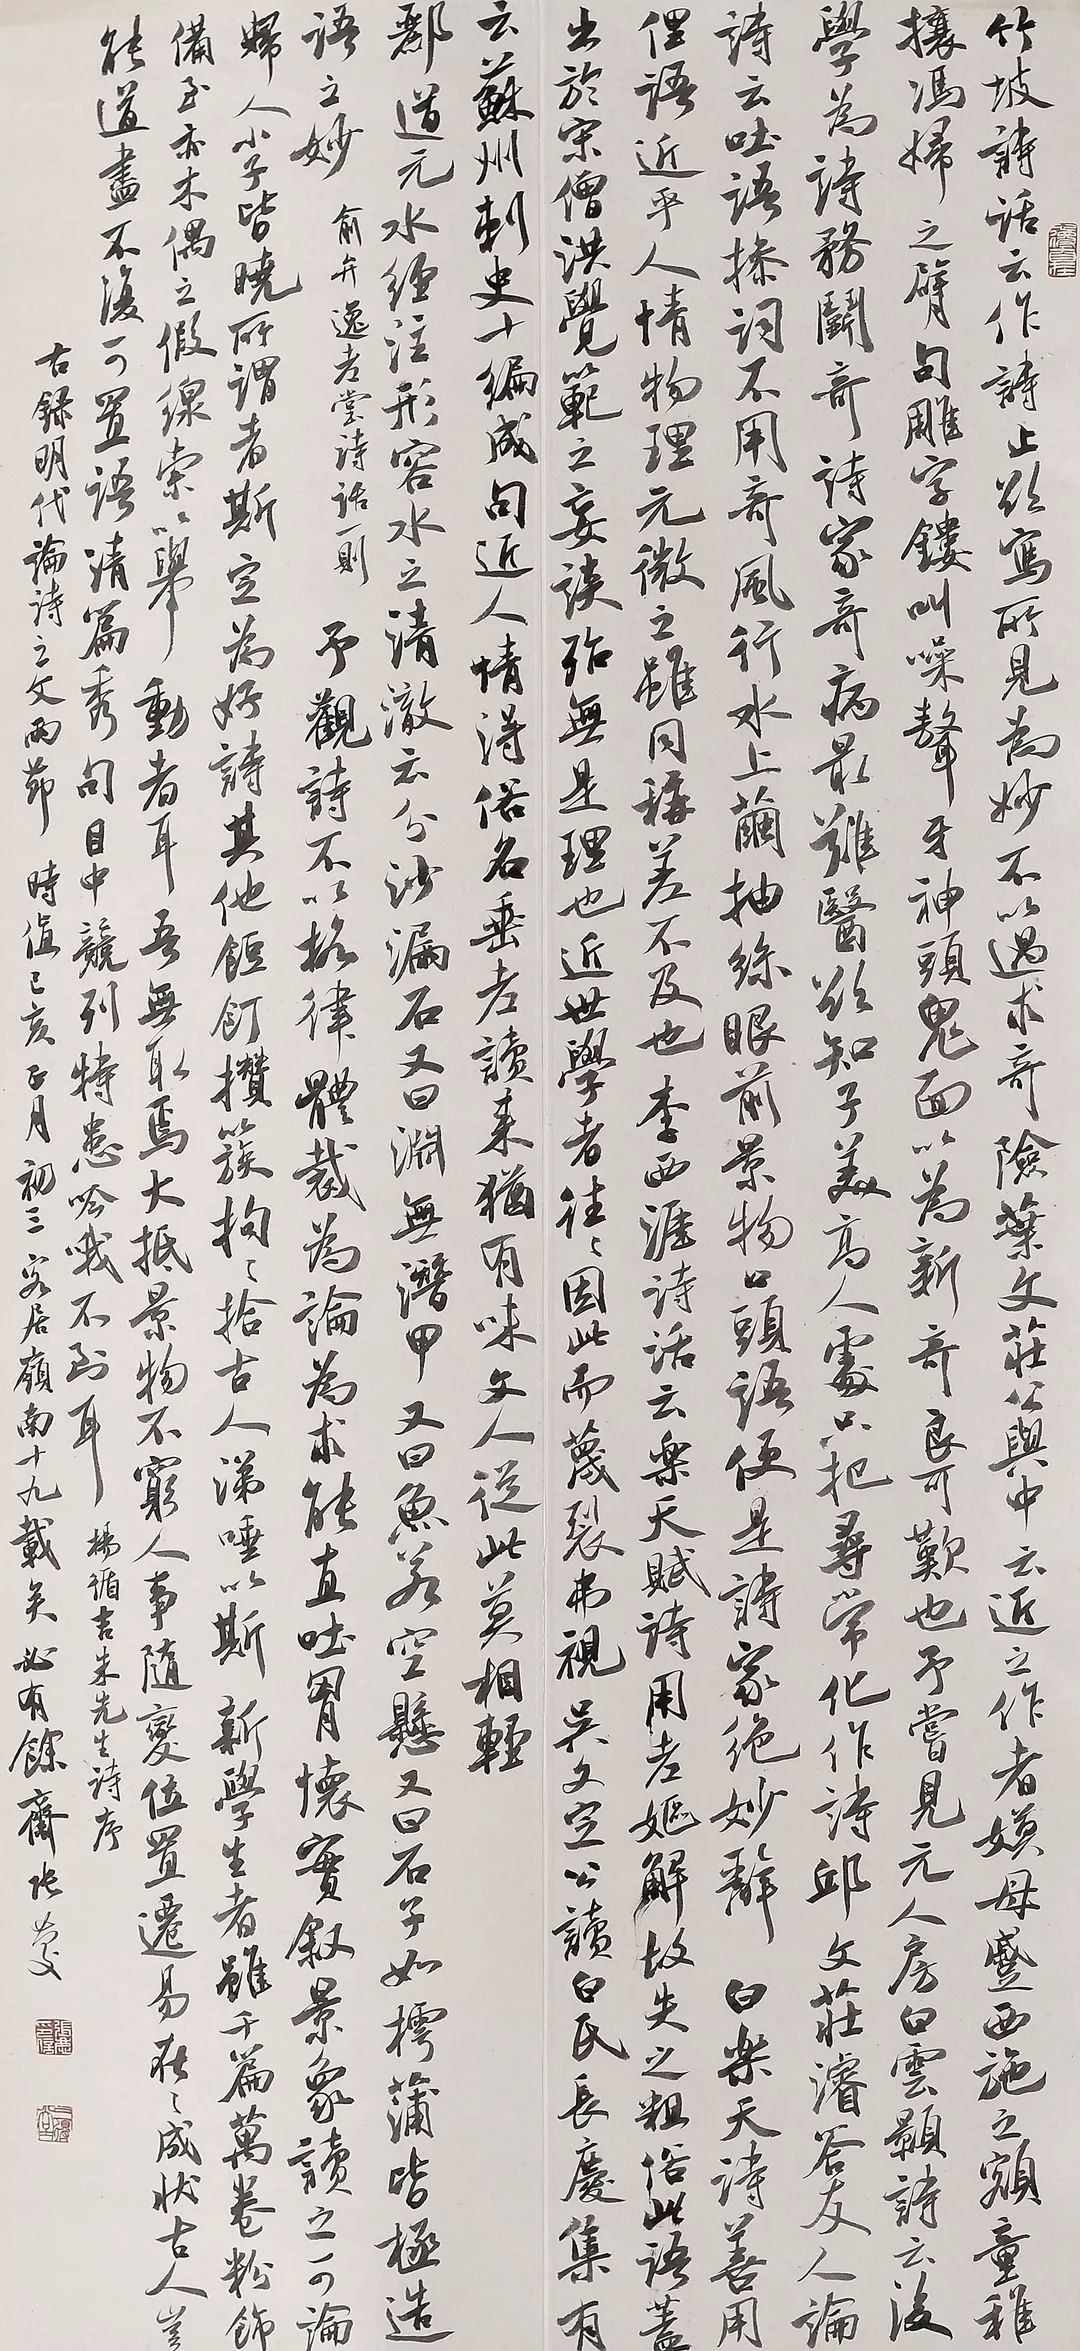 竹坡詩話云作詩止欲寫所見為妙不必過求奇險葉文莊公與中云近之作者嫫母蹙西施之顰童稚
攘馮婦之臂句雕字鏤叫噪聱牙神頭鬼面以為新奇良可歎也予嘗見元人房白雲顥詩云後
學為詩務鬭奇詩家奇病最難醫欲知子美高人處只把尋常化作詩邱文莊濬答友人論
詩云吐語操詞不用奇風行水上繭抽絲眼前景物口頭語便是詩家絶妙辭 白樂天詩善用
俚語近乎人情物理元微之雖同稱差不及也李西涯詩話云樂天賦詩用老嫗解故失之粗俗此語蓋
出於宋僧洪覺範之妄談殆無是理也近世學者往往因此而蔑裂弗視吳文定公讀白氏長慶集有
云蘇州刺史十編成句近人情得俗名垂老讀來猶有味文人從此莫相輕
酈道元水經注形容水之清澈云分沙漏石又曰淵無潛甲又曰魚若空懸又曰石子如樗蒲皆極造
語之妙 俞弁逸老堂詩話一則 予觀詩不以格律體裁為論為求能直吐胷懷實叙景象讀之可論
婦人小子皆曉所謂者斯定為好詩其他餖飣攢簇拘拘拾古人涕唾以斯新學生者雖千篇萬卷粉飾
備至亦木偶之假線索以舉動者耳吾無取焉大抵景物不窮人事隨變位置遷易在在成狀古人豈
能道盡不復可置語清篇秀句目中競列特患吟哦不到耳 楊循吉朱先生詩序
右録明代論詩之文兩節 時值己亥正月初三客居嶺南十九載矣必有餘齋